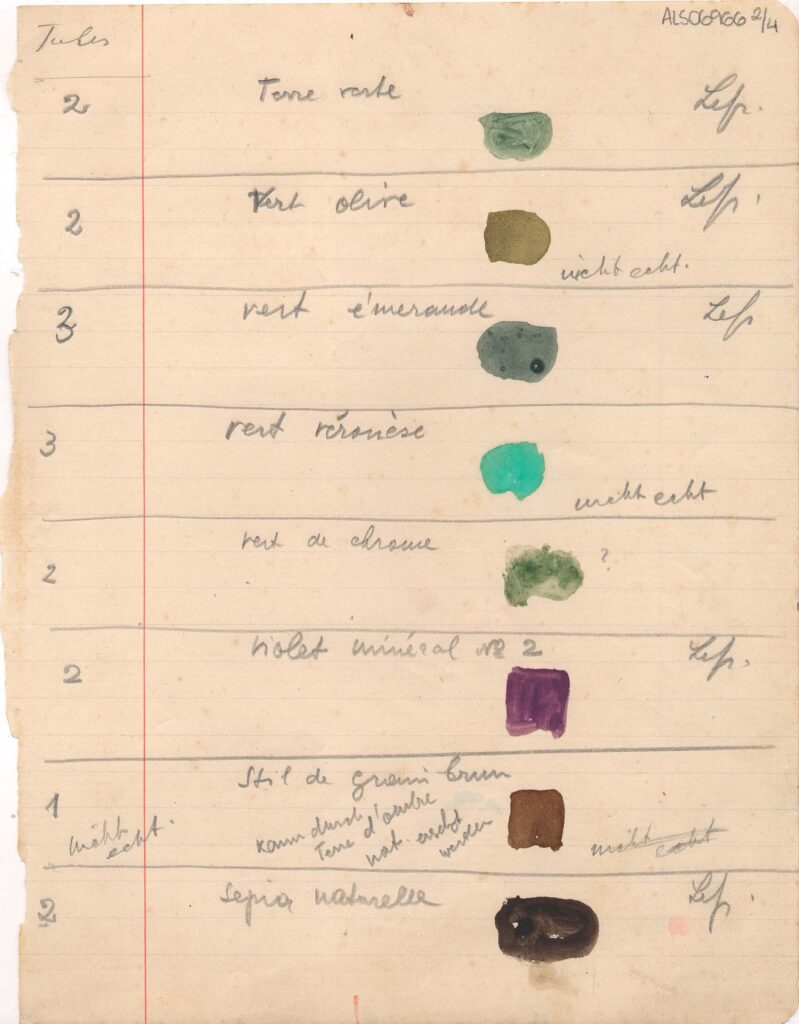 ALS069G6 2/4
Tubes
2 Terre verte Lefr.
2 Vert olive Lefr.
nicht echt.
3 vert émeraude Lefr
3 vert véronèse
nicht echt
2 vert de chrome ?
2 violet minéral No 2 Lefr.
1 Stil de grain brun
nicht echt.
kann durch
Terre d'ombre
nat. ersetzt
werden
nicht echt
2 Sepia naturelle Lefr.